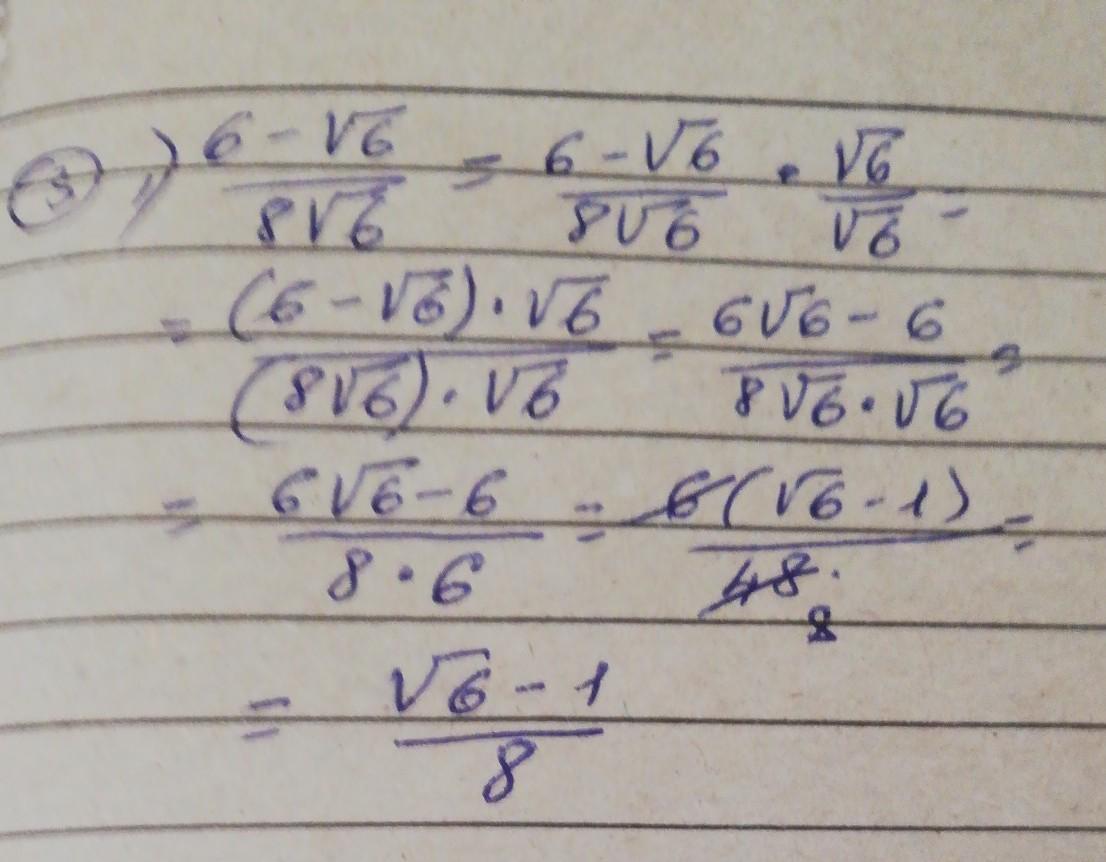 ③ 1) (6-√6)/(8√6) = (6-√6)/(8√6) · √6/√6 =
= ((6-√6)·√6)/((8√6)·√6) = (6√6-6)/(8√6·√6) =
= (6√6-6)/(8·6) = 6(√6-1)/48 8 =
= (√6-1)/8